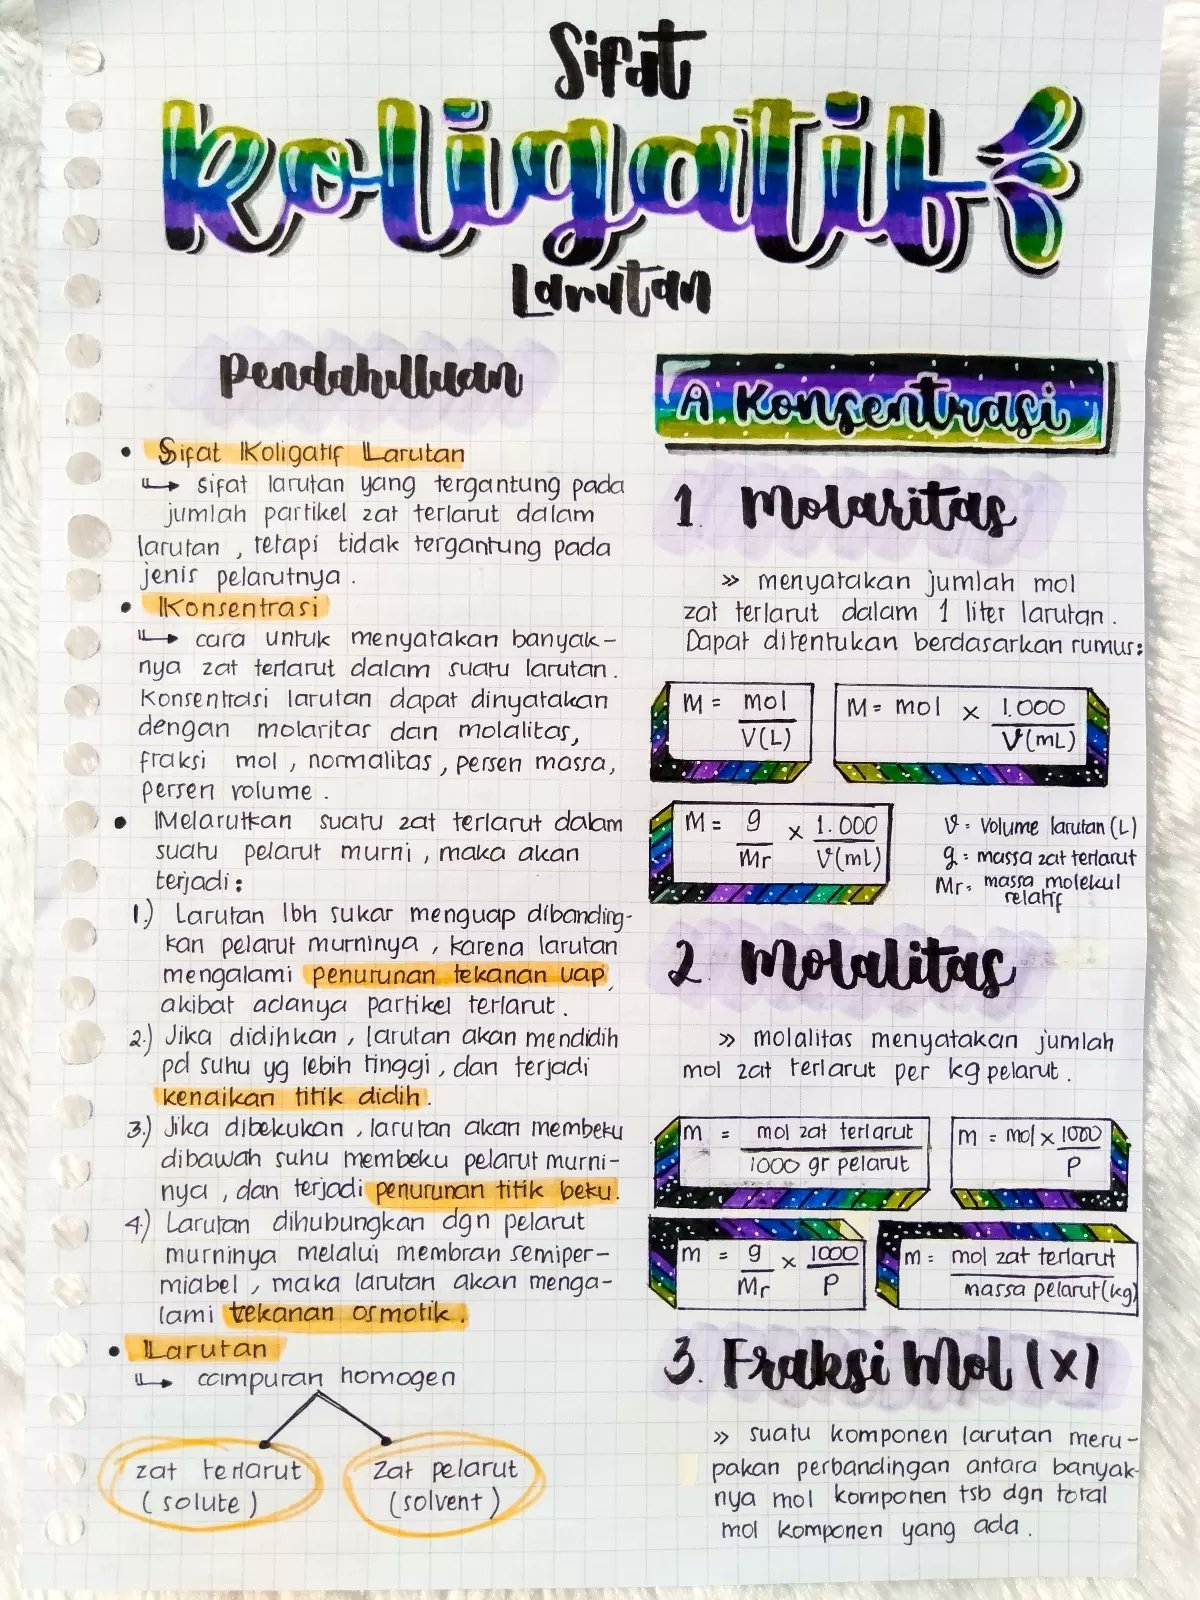 Sifat
Koligatif
Larutan
Pendahuluan
• Sifat Koligatif Larutan
↳ sifat larutan yang tergantung pada
jumlah partikel zat terlarut dalam
larutan, tetapi tidak tergantung pada
jenis pelarutnya.
• Konsentrasi
↳ cara untuk menyatakan banyak-
nya zat terlarut dalam suatu larutan.
Konsentrasi larutan dapat dinyatakan
dengan molaritas dan molalitas,
fraksi mol, normalitas, persen massa,
persen volume.
• Melarutkan suatu zat terlarut dalam
suatu pelarut murni, maka akan
terjadi:
1.) Larutan lbh sukar menguap dibanding-
kan pelarut murninya, karena larutan
mengalami penurunan tekanan uap,
akibat adanya partikel terlarut.
2.) Jika didihkan, larutan akan mendidih
pd suhu yg lebih tinggi, dan terjadi
kenaikan titik didih.
3.) Jika dibekukan, larutan akan membeku
dibawah suhu membeku pelarut murni-
nya, dan terjadi penurunan titik beku.
4.) Larutan dihubungkan dgn pelarut
murninya melalui membran semiper-
miabel, maka larutan akan menga-
lami tekanan osmotik.
• Larutan
↳ campuran homogen
zat terlarut
(solute)
Zat pelarut
(solvent)
A. Konsentrasi
1. Molaritas
» menyatakan jumlah mol
zat terlarut dalam 1 liter larutan.
Dapat ditentukan berdasarkan rumus:
M = mol / V(L)
M = mol × 1.000 / V(mL)
M = g / Mr × 1.000 / V(mL)
V = Volume larutan (L)
g = massa zat terlarut
Mr = massa molekul
relatif
2. Molalitas
» molalitas menyatakan jumlah
mol zat terlarut per kg pelarut.
m = mol zat terlarut / 1000 gr pelarut
m = mol × 1000 / P
m = g / Mr × 1000 / P
m = mol zat terlarut / massa pelarut (kg)
3. Fraksi Mol (X)
» suatu komponen larutan meru-
pakan perbandingan antara banyak-
nya mol komponen tsb dgn total
mol komponen yang ada.